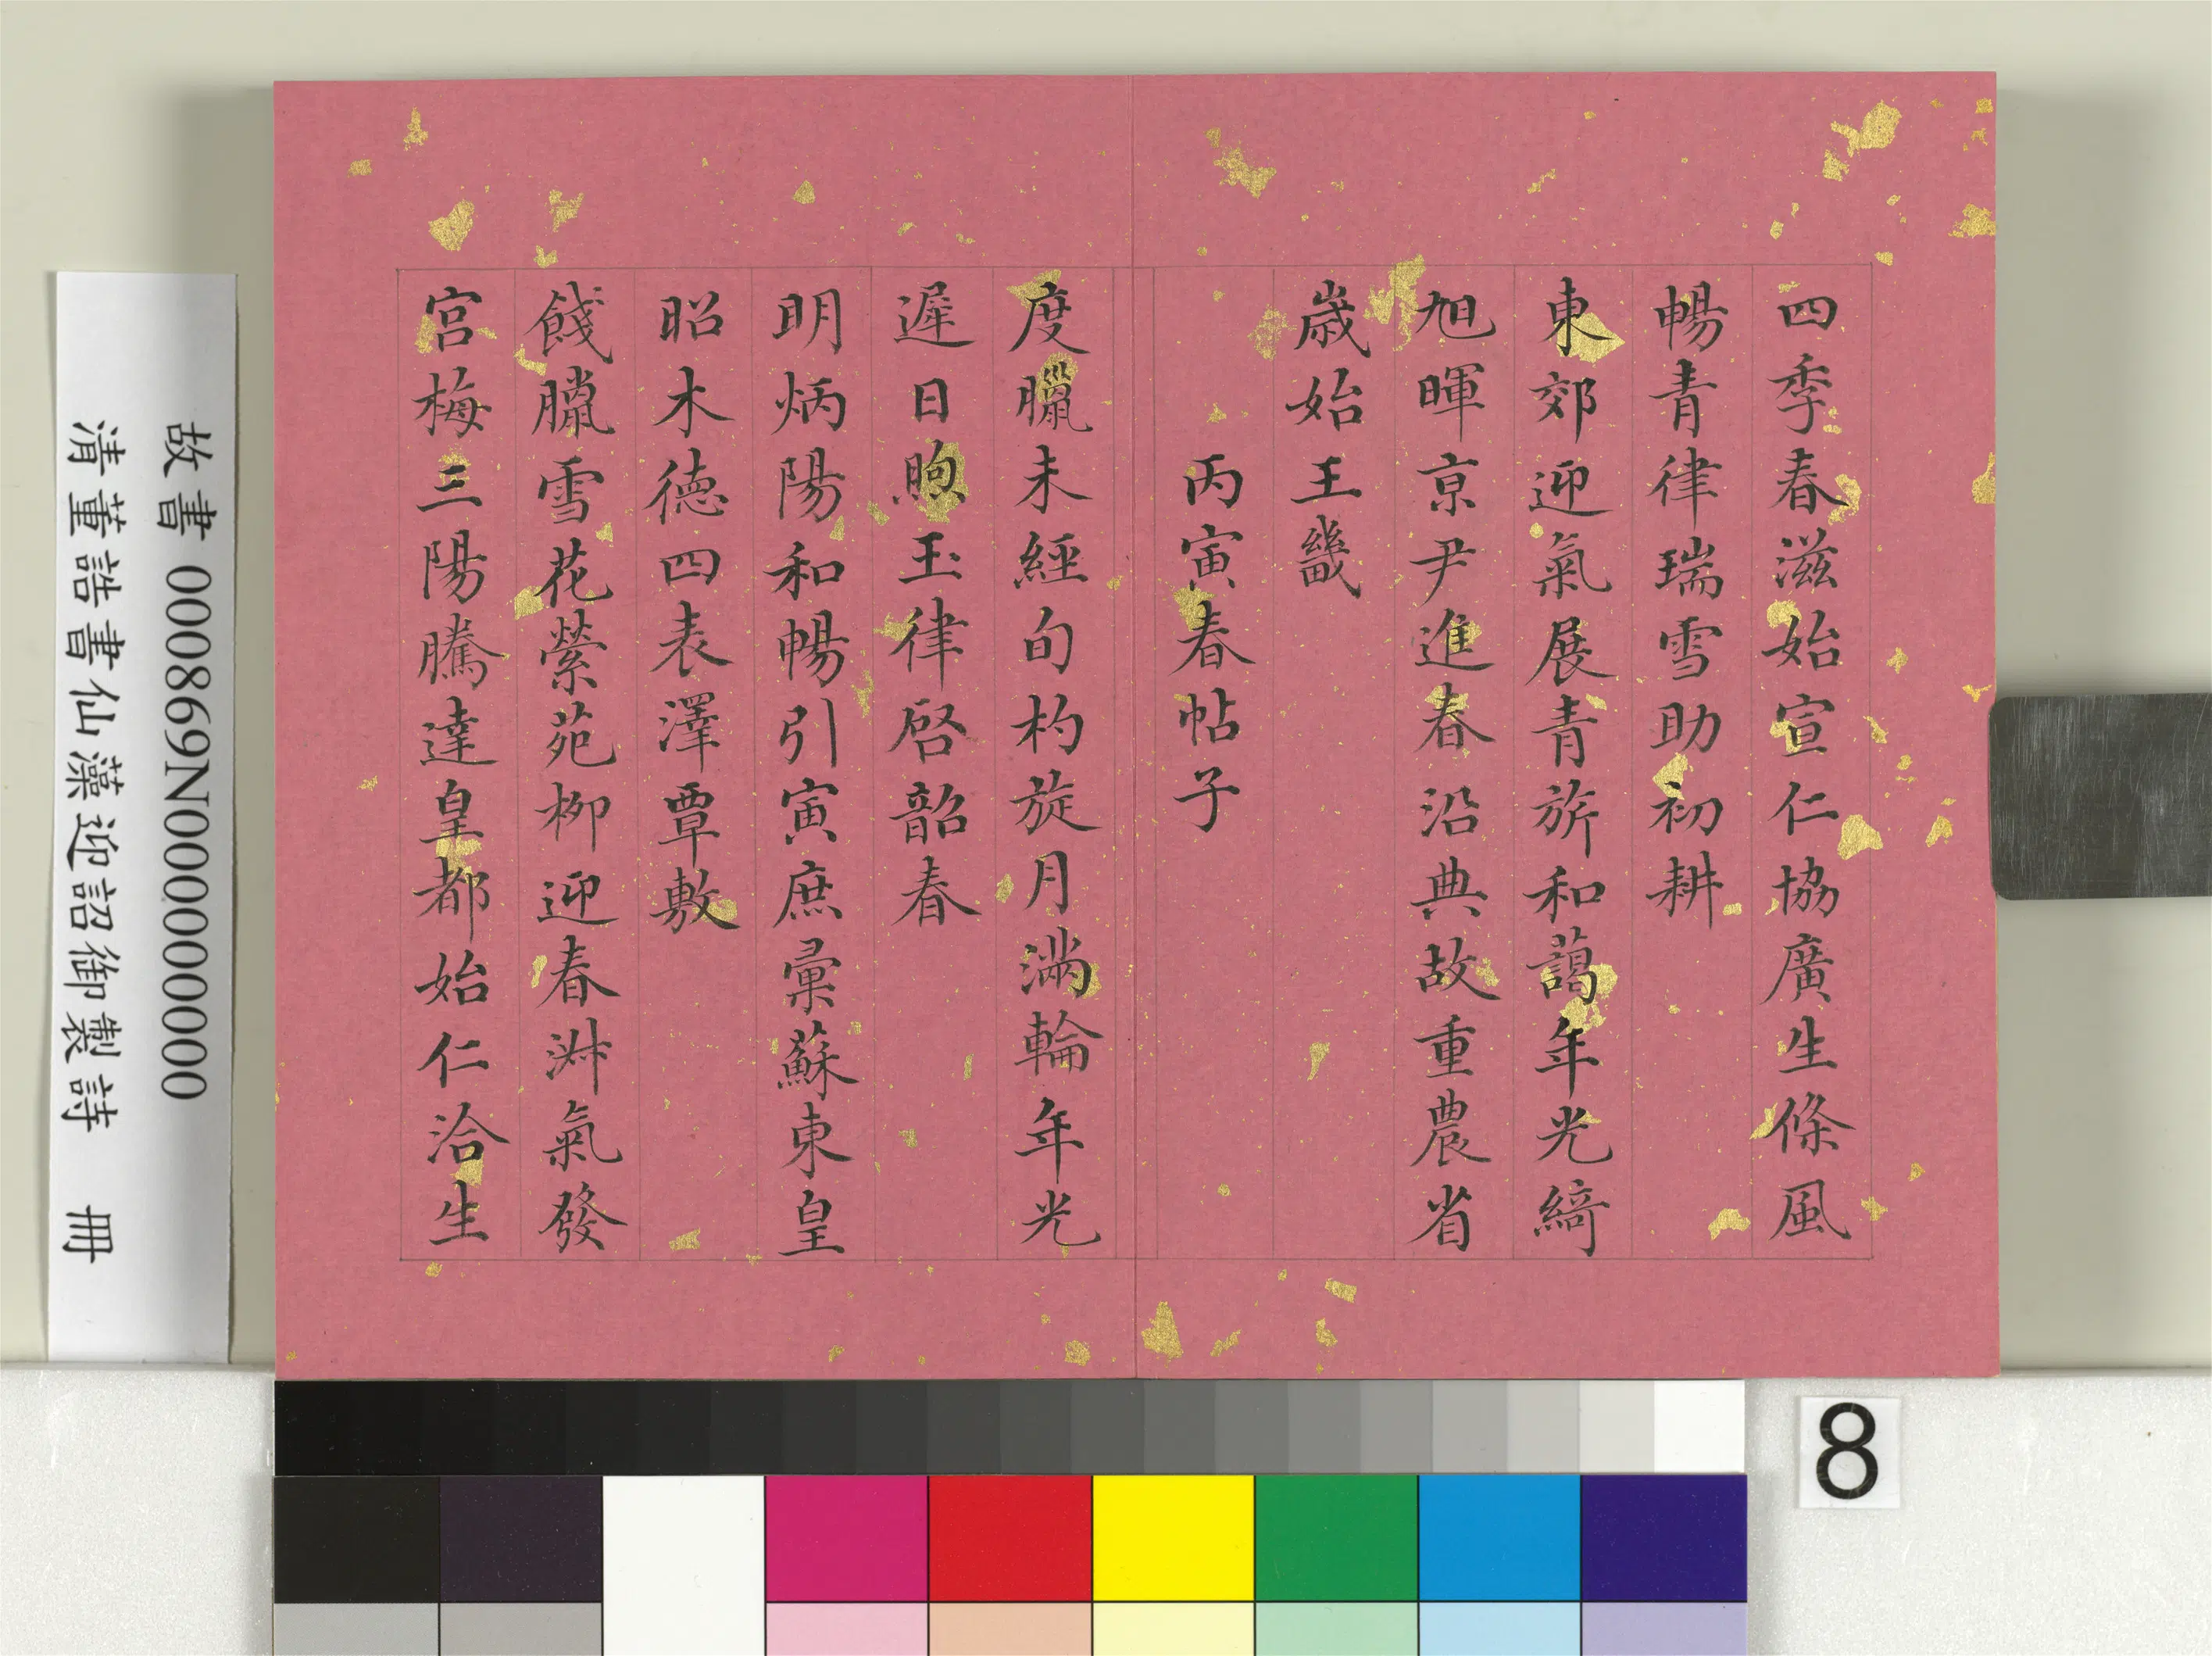 四季春滋始宣仁協廣生條風
暢青律瑞雪助初耕
東郊迎氣展青旂和藹年光綺
旭暉京尹進春沿典故重農省
歲始王畿
丙寅春帖子
度臘未經旬杓旋月滿輪年光
遲日煦玉律啓韶春
明炳陽和暢引寅庶彙蘇東皇
昭木德四表澤覃敷
餞臘雪花縈苑柳迎春淑氣發
宮梅三陽騰達皇都始仁洽生
故書 000869N000000000
清董誥書仙藻迎詔御製詩 冊
8